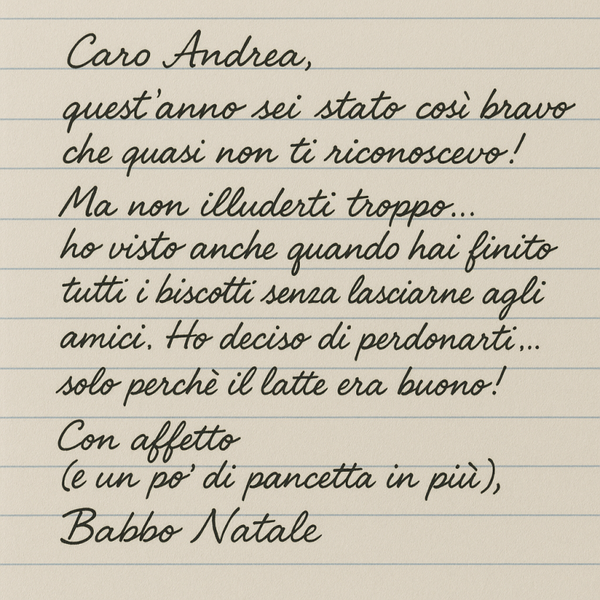 Caro Andrea,
quest'anno sei stato così bravo
che quasi non ti riconoscevo!
Ma non illuderti troppo...
ho visto anche quando hai finito
tutti i biscotti senza lasciarne agli
amici. Ho deciso di perdonarti...
solo perchè il latte era buono!
Con affetto
(e un po' di pancetta in più),
Babbo Natale